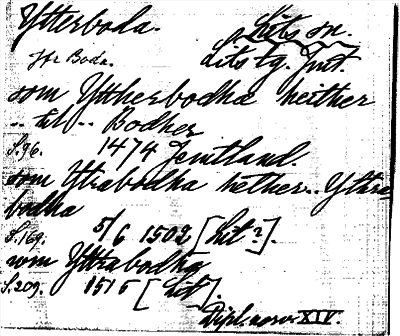 Ytterboda. Lits sn.
Jfr Boda. Lits tg. Jmt.
som Yttherbodha heither
.. til .. Bodher
S. 96. 1474 Jemtland.
som Ytrabodha hether .. Ytra
bodha
S. 169. 5/6 1502 [Lit?].
som Yttrabodha
S. 209. 1515 [Lit].
Dipl. norv. XIV.